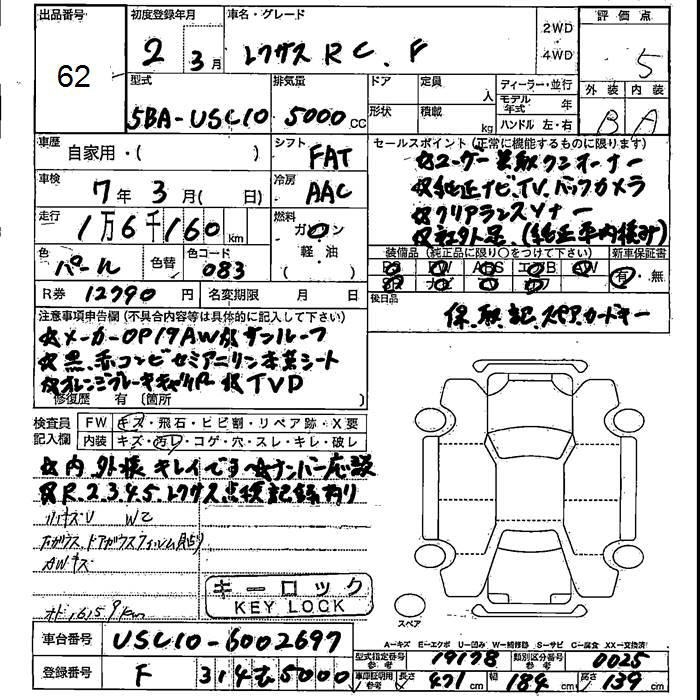 出品番号 初度登録年月 車名・グレード 評価点
62 2 3月 レクサス RC.F 2WD 4WD 5
型式 排気量 ドア 定員 人 ディーラー・並行 外装 内装
5BA-USC10 5000cc 形状 積載 kg モデル年式 年 ハンドル 左・右 B A
車歴 自家用・( ) シフト FAT セールスポイント(正常に機能するものに限ります)
☆ユーザー買取ワンオーナー
車検 7年 3月 ( 日) 冷房 AAC ☆純正ナビ.TV.バックカメラ
走行 1万6千160km 燃料 ガソリン ☆クリアランスソナー
(軽油) ☆社外足.(純正車内積み)
色 パール 色替 色コード 083 装備品(純正品に限り○をつけて下さい) 新車保証書
PS PW ABS エアB AW 有・無
R券 12790円 名変期限 月 日 後日品
保.取.記.スペア.カードキー
注意事項申告欄(不具合内容等は具体的に記入して下さい)
☆メーカーOP19AW.サンルーフ
☆黒.赤コンビセミアニリン本革シート
☆オレンジブレーキキャリパー TVD
修復歴 有 〔箇所 〕
検査員記入欄 FW キズ・飛石・ヒビ割・リペア跡・X要
内装 キズ・汚レ・コゲ・穴・スレ・キレ・破レ
☆内.外装キレイです ☆ナンバー応談
☆R.2.3.4.5.レクサス点検記録有り
AWキズ
キーロック
KEY LOCK
スペア
A-キズ E-エクボ U-凹み W-補修跡 S-サビ C-腐食 XX-交換済
車台番号 USC10-6002697 型式指定番号 参考 19178 類別区分番号 参考 0025
登録番号 F 314 む 5000 車庫証明用 参考 長さ 471cm 幅 184cm 高さ 139cm